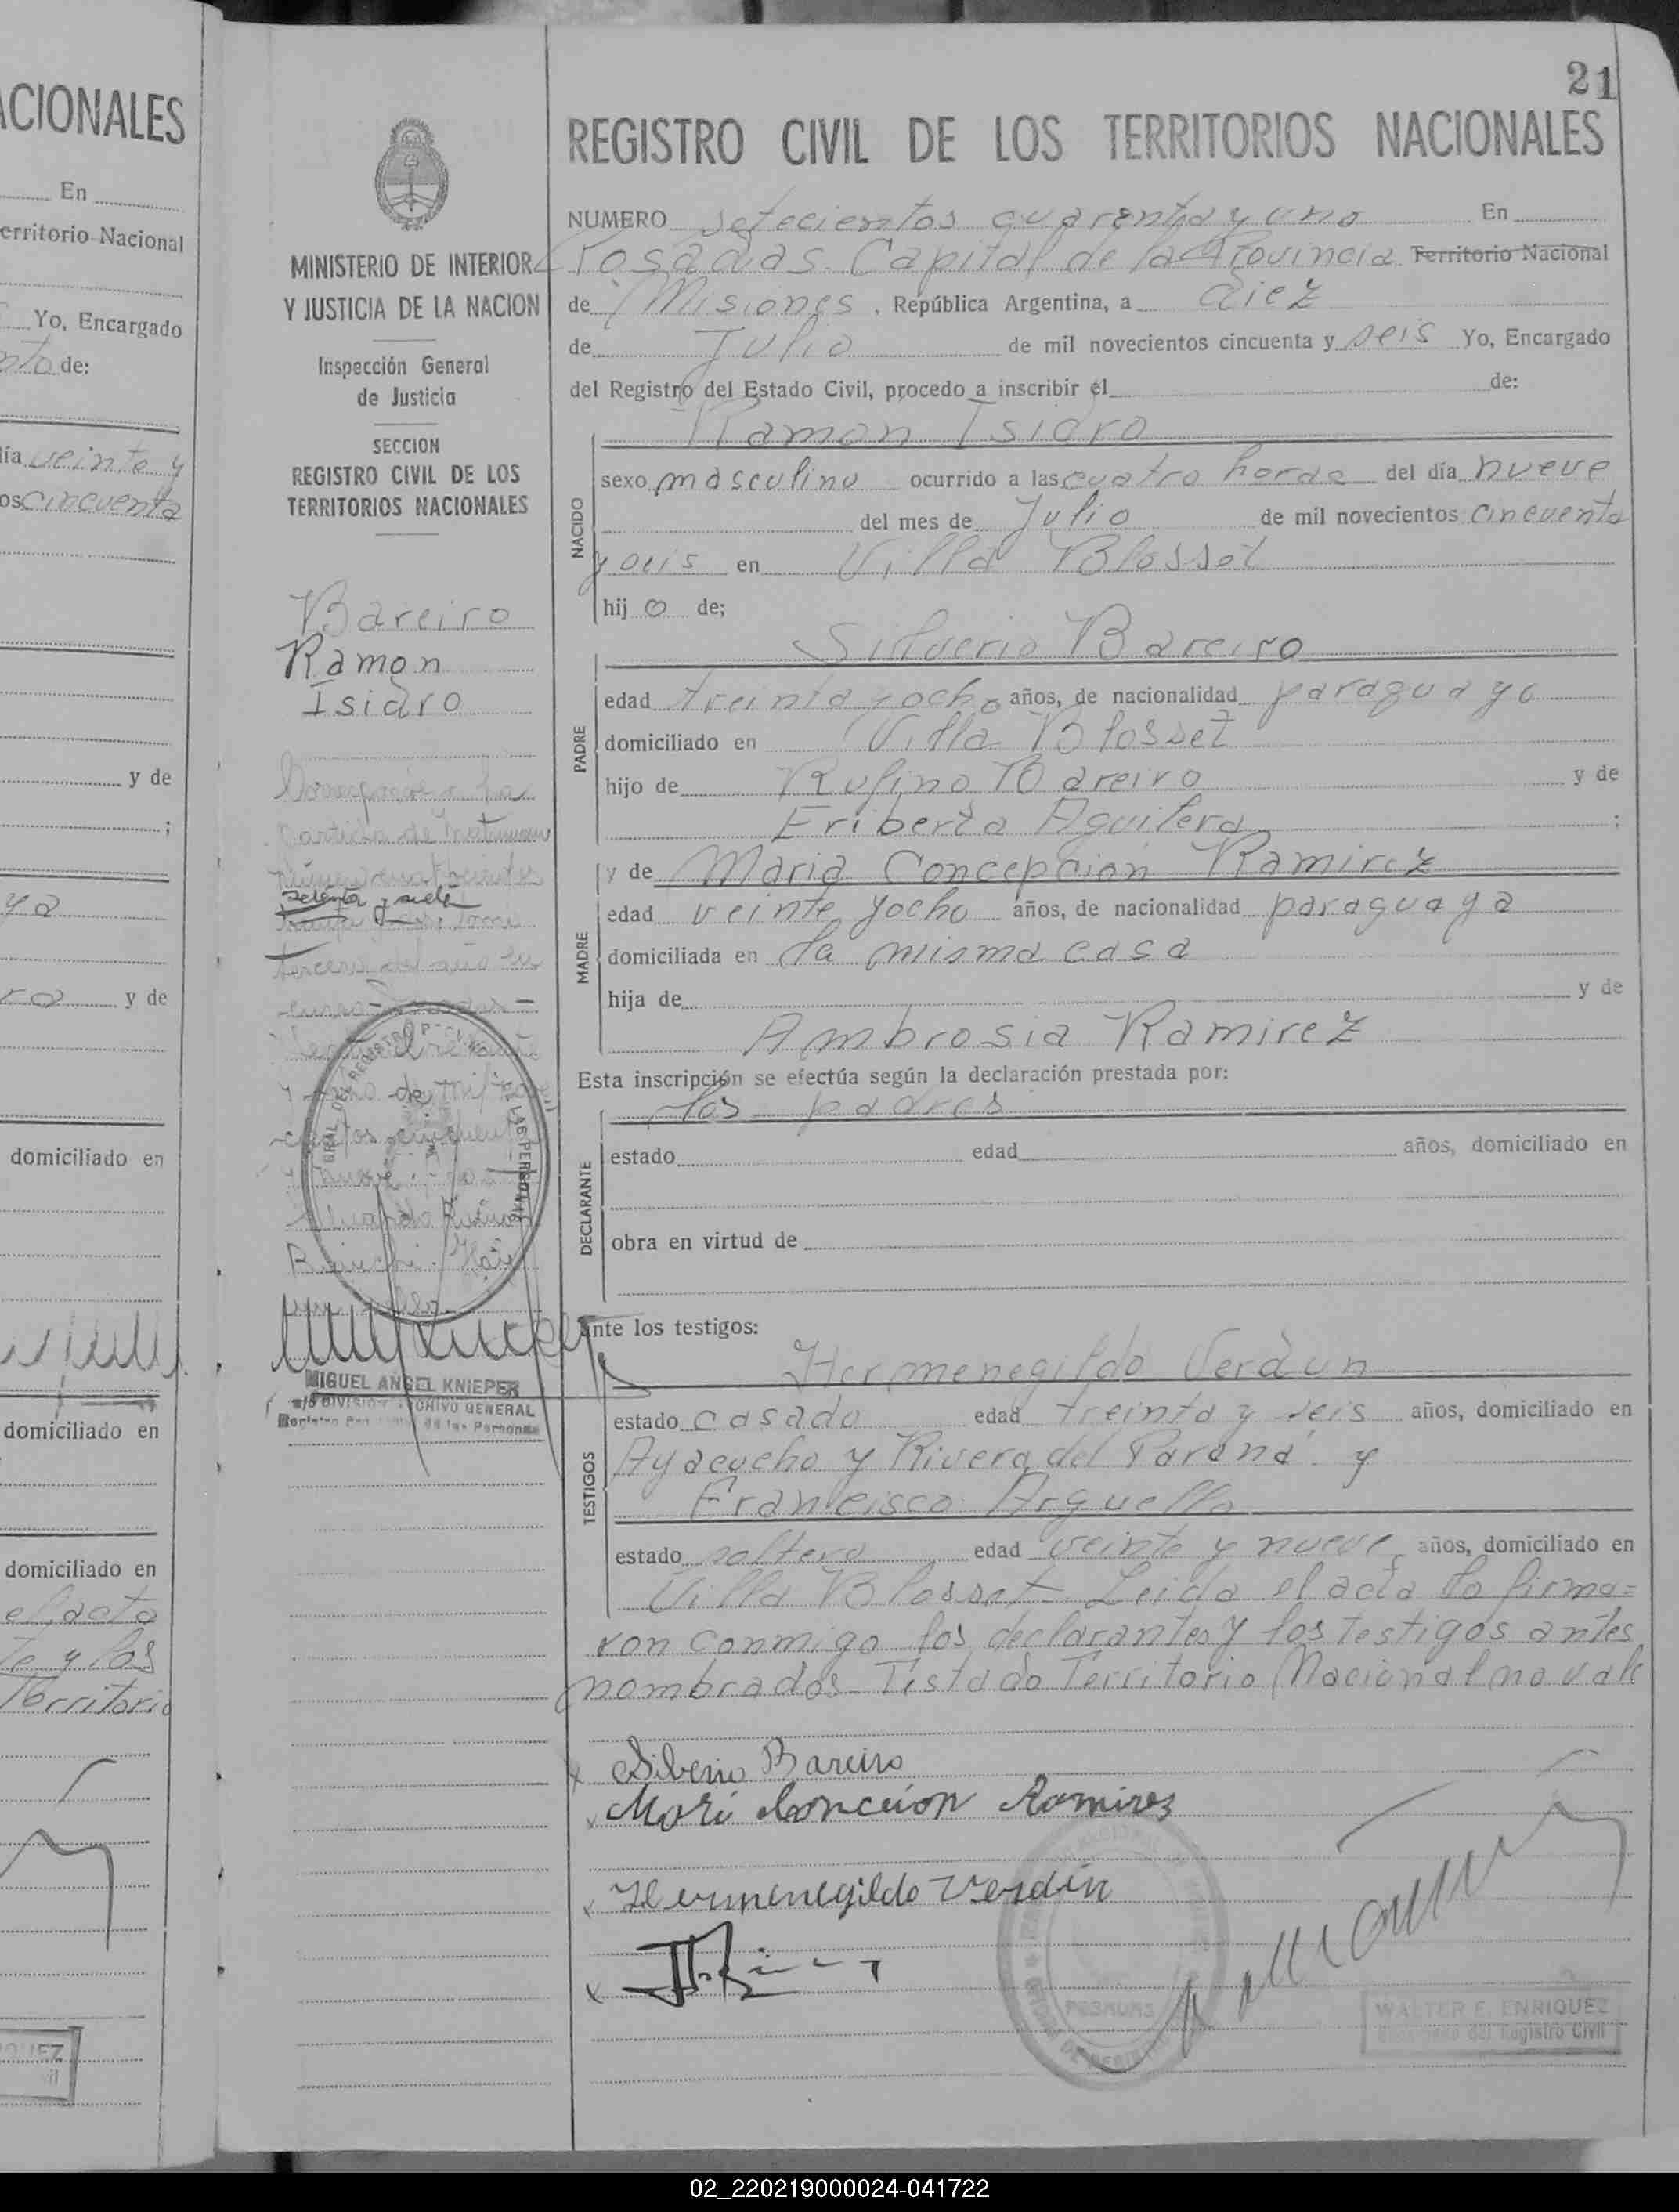 ACIONALES
En
erritorio Nacional
Yo, Encargado
de:
día veinte y
os cincuenta
y de
;
ya
y de
domiciliado en
domiciliado en
domiciliado en
el acta
te y los
Territorio
MINISTERIO DE INTERIOR
Y JUSTICIA DE LA NACION
Inspección General
de Justicia
SECCION
REGISTRO CIVIL DE LOS
TERRITORIOS NACIONALES
Bareiro
Ramon
Isidro
setenta y siete
MIGUEL ANGEL KNIEPER
DIVISION ARCHIVO GENERAL
de las Personas
21
REGISTRO CIVIL DE LOS TERRITORIOS NACIONALES
NUMERO setecientos cuarenta y uno En
Posadas Capital de la Provincia Territorio Nacional
de Misiones, República Argentina, a diez
de Julio de mil novecientos cincuenta y seis Yo, Encargado
del Registro del Estado Civil, procedo a inscribir el de:
Ramon Isidro
NACIDO
sexo masculino ocurrido a las cuatro horas del día nueve
del mes de Julio de mil novecientos cincuenta
y seis en Villa Blosset
hij o de;
Silverio Bareiro
PADRE
edad treinta y ocho años, de nacionalidad paraguayo
domiciliado en Villa Blosset
hijo de Rufino Bareiro y de
Eriberta Aguilera ;
y de Maria Concepcion Ramirez
MADRE
edad veinte y ocho años, de nacionalidad paraguaya
domiciliada en la misma casa
hija de y de
Ambrosia Ramirez
Esta inscripción se efectúa según la declaración prestada por:
los padres
DECLARANTE
estado edad años, domiciliado en
obra en virtud de
Ante los testigos:
Hermenegildo Verdun
TESTIGOS
estado casado edad treinta y seis años, domiciliado en
Ayacucho y Rivera del Paraná y
Francisco Arguello
estado soltero edad veinte y nueve años, domiciliado en
Villa Blosset - Leida el acta la firma=
ron conmigo los declarantes y los testigos antes
nombrados - Testado Territorio Nacional no vale
x Silberio Bareiro
x Mari Conceccion Ramires
x Hermenegildo Verdún
x
POSADAS
WALTER F. ENRIQUEZ
Encargado del Registro Civil
02_220219000024-041722